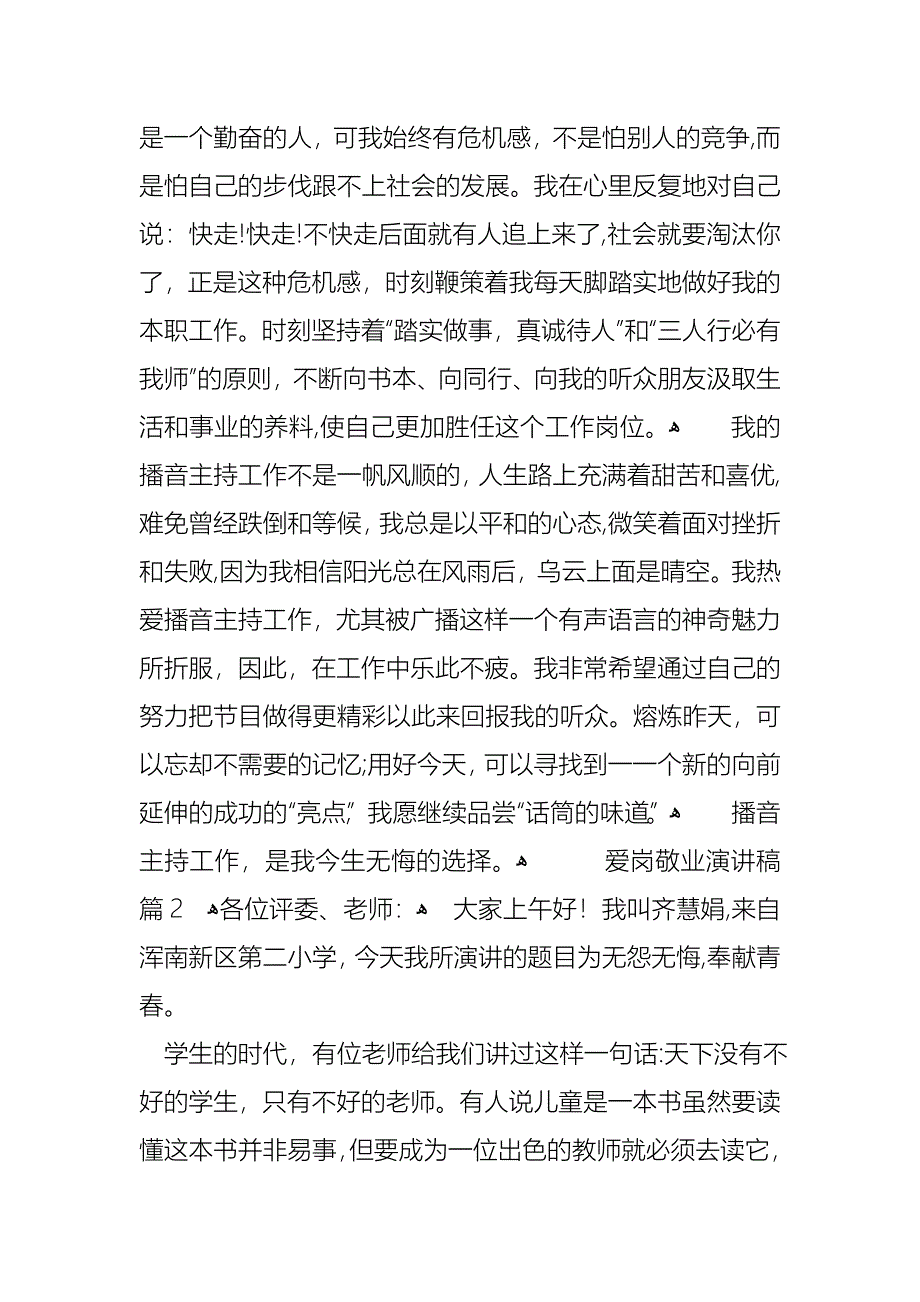 是一个勤奋的人，可我始终有危机感，不是怕别人的竞争,而
是怕自己的步伐跟不上社会的发展。我在心里反复地对自己
说：快走!快走!不快走后面就有人追上来了,社会就要淘汰你
了，正是这种危机感，时刻鞭策着我每天脚踏实地做好我的
本职工作。时刻坚持着“踏实做事，真诚待人”和“三人行必有
我师”的原则，不断向书本、向同行、向我的听众朋友汲取生
活和事业的养料,使自己更加胜任这个工作岗位。 ﻫ 我的
播音主持工作不是一帆风顺的，人生路上充满着甜苦和喜优,
难免曾经跌倒和等候，我总是以平和的心态,微笑着面对挫折
和失败,因为我相信阳光总在风雨后，乌云上面是晴空。我热
爱播音主持工作，尤其被广播这样一个有声语言的神奇魅力
所折服，因此，在工作中乐此不疲。我非常希望通过自己的
努力把节目做得更精彩以此来回报我的听众。熔炼昨天，可
以忘却不需要的记忆;用好今天，可以寻找到一一个新的向前
延伸的成功的“亮点”，我愿继续品尝“话筒的味道”。 ﻫ 播音
主持工作，是我今生无悔的选择。 ﻫ 爱岗敬业演讲稿
篇2 ﻫ各位评委、老师： ﻫ 大家上午好！我叫齐慧娟,来自
浑南新区第二小学，今天我所演讲的题目为无怨无悔,奉献青
春。
学生的时代，有位老师给我们讲过这样一句话:天下没有不
好的学生，只有不好的老师。有人说儿童是一本书虽然要读
懂这本书并非易事,但要成为一位出色的教师就必须去读它，